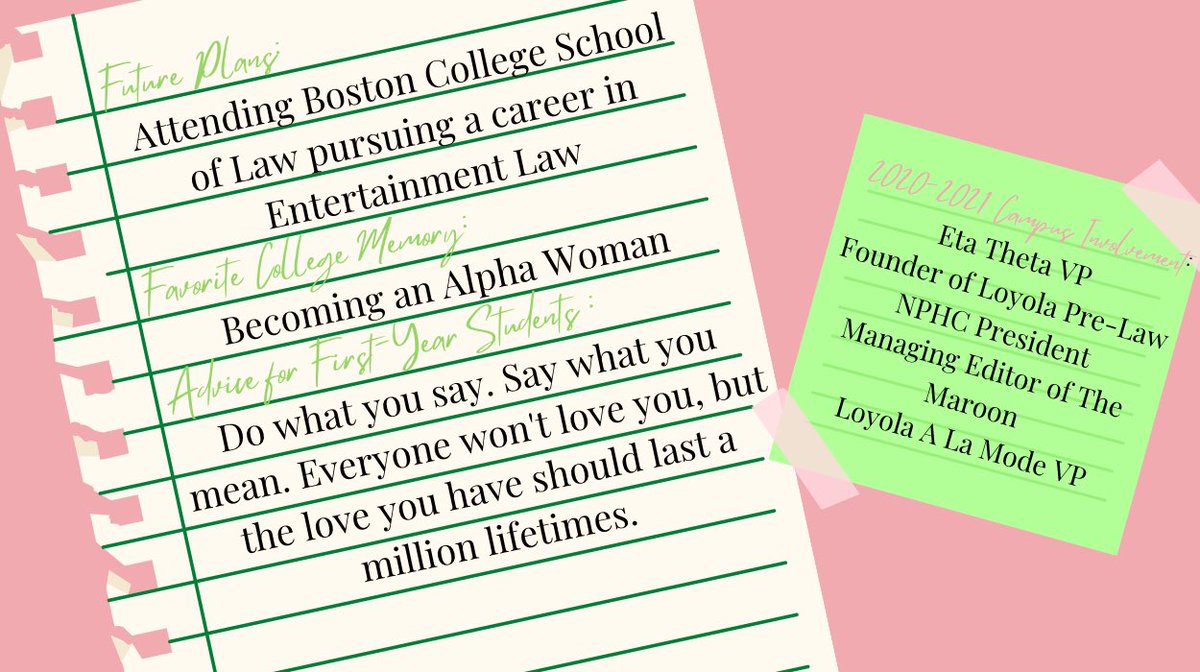 Future Plans:
Attending Boston College School
of Law pursuing a career in
Entertainment Law
Favorite College Memory:
Becoming an Alpha Woman
Advice for First-Year Students:
Do what you say. Say what you
mean. Everyone won't love you, but
the love you have should last a
million lifetimes.
2020-2021 Campus Involvement:
Eta Theta VP
Founder of Loyola Pre-Law
NPHC President
Managing Editor of The
Maroon
Loyola A La Mode VP